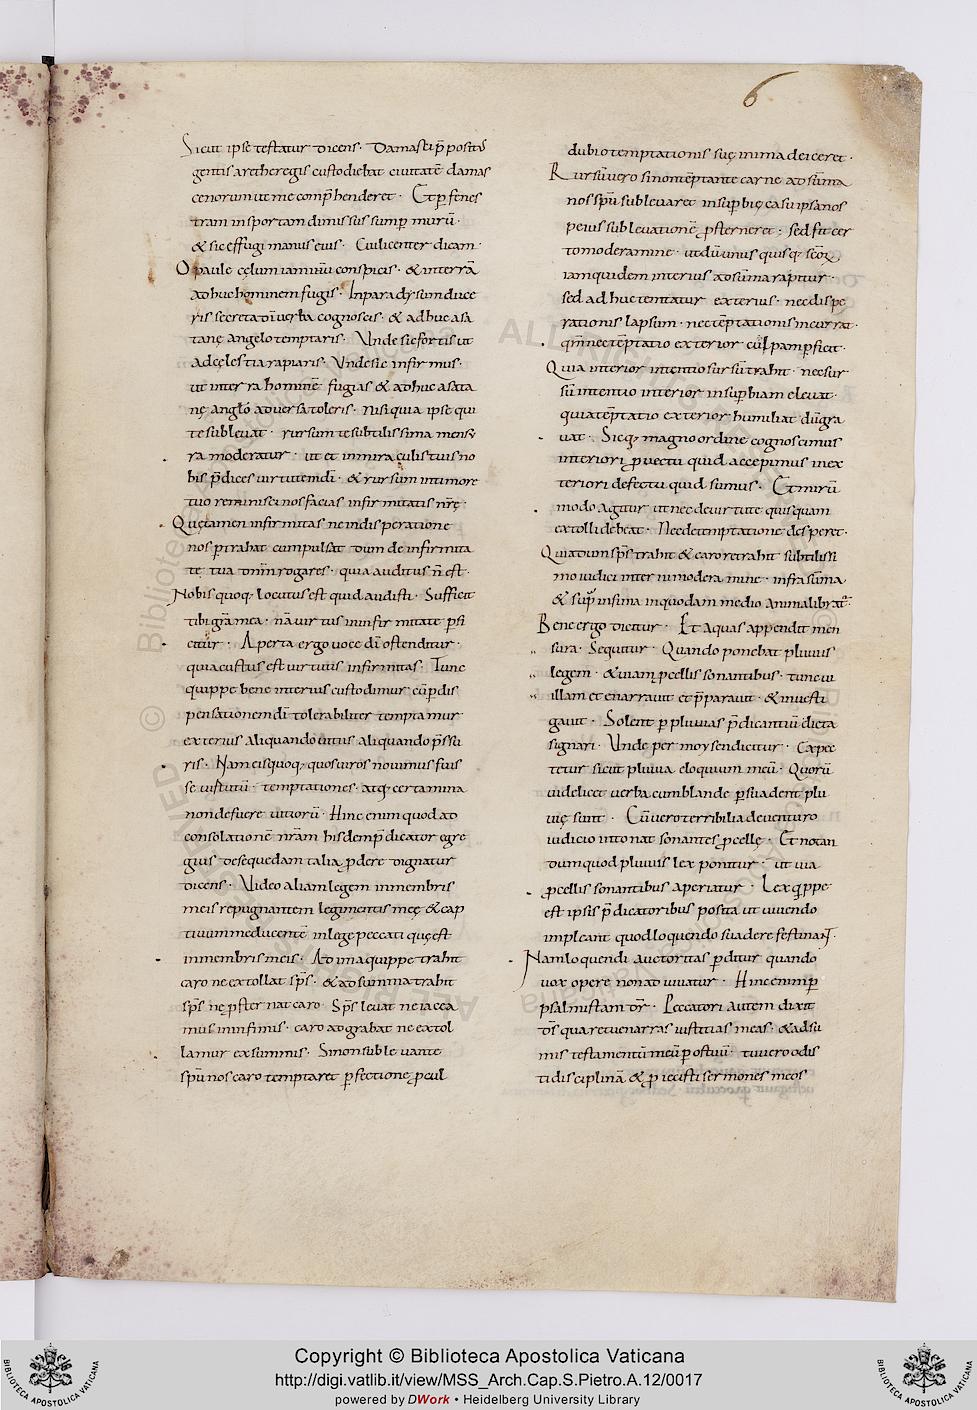 6
Sicut ipse testatur dicens· Damasci p̄positus
gentis arethe regis custodiebat ciuitatē damas
cenorum ut me comp̄henderet· Et per fenes
tram in sportam dimissus sum per murū·
& sic effugi manus eius· Cui licenter dicam·
O paule cęlum iam iħu conspicis· & in terrā
adhuc hominem fugis· In paradysum duce
ris secreta dī uerba cognoscis· & adhuc a sa
tanę angelo temptaris· Unde sic fortis ut
ad cęlestia rapiaris· Unde sic infirmus·
ut in terra hominē fugias & adhuc a sata
nę anglo aduersa toleris· nisi quia ipse qui
te subleuat· rursum te subtilissima mensu
ra moderatur· ut et in miraculis tuis no
bis p̄dices uirtutem dī· & rursum in timore
tuo reminisci nos facias infirmitatis nr̄ę·
Quę tamen infirmitas ne in disperatione
nos pertrahat cum pulsat dum de infirmita
te tua dnm̄ rogares· quia auditus n̄ est·
Nobis quoq; locutus est quid audisti· Sufficit
tibi gr̄a mea· nā uirtus in infirmitate perfi
citur· Aperta ergo uoce dī ostenditur·
quia custus est uirtutis infirmitas· Tunc
quippe bene interius custodimur cū per dis
pensationem dī tolerabiliter temptamur
exterius aliquando uitiis aliquando p̄ssu
ris· Nam eis quoq; quos uiros nouimus fuis
se uirtutū· temptationes atq; certamina
non defuere uitiorū· Hinc enim quod ad
consolationē nr̄am hisdem p̄dicator egre
gius de se quedam talia prodere dignatur
dicens· Video aliam legem in membris
meis repugnantem legi mentis meę & cap
tiuum me ducentē in lege peccati quę est
in membris meis· Ad ima quippe trahit
caro ne extollat sp̄s· & ad summa trahit
sp̄s ne prosternat caro· Sp̄s leuat ne iacea
mus in infimis· caro adgrabat ne extol
lamur ex summis· Si non subleuante
spū nos caro temptaret perfectione procul
dubio temptationis suę in ima deiceret·
Rursū uero si non tēptante carne ad sūma
nos spū subleuaret in superbię casu ipsa nos
peius subleuationē prosterneret· sed fit cer
to moderamine· ut dū unus quisq; scōꝝ
iam quidem interius ad sūma raptur·
sed adhuc temtatur exterius· nec dispe
rationis lapsum· nec tēptationis incurrat·
qm̄ nec tēptatio exterior culpam perficit·
Quia interior intentio sursū trahit· nec sur
sū intentio interior in superbiam eleuat·
quia tēptatio exterior humiliat dū gra
uat· Sicq; magno ordine cognoscimus
interiori prouectu quid accepimus in ex
teriori defectu quid sumus· Et mirū
modo agitur ut nec de uirtute quisquam
extolli debeat· Nec de temptatione desperet·
Quia dum sp̄s trahit & caro retrahit subtilissi
mo iudicii interni moderamine· infra sūma
& supra infima in quodam medio anima librat·
Bene ergo dicitur· Et aquas appendit men
sura· Sequitur· Quando ponebat pluuiis
legem· & uiam procellis sonantibus· tunc ui
illam et enarrauit et p̄parauit· & inuesti
gauit· Solent per pluuias p̄dicantiū dicta
signari· Unde per moysen dicitur· Expec
tetur sicut pluuia eloquium meū· Quorū
uidelicet uerba cum blande persuadent plu
uię sunt· Cū uero terribilia de uenturo
iudicio intonat sonantes procellę· Et notan
dum quod pluuiis lex ponitur· ut uia
procellis sonantibus aperiatur· Lex quippe
est ipsis p̄dicatoribus posita ut uiuendo
impleant quod loquendo suadere festinant·
Nam loquendi auctoritas perditur quando
uox opere non adiuuatur· Hinc enim per
psalmistam dr̄· Peccatori autem dixit
ds̄ quare tu enarras iustitias meas· & adsu
mis testamentū meū per os tuū· tu uero odis
ti disciplinā & proiecisti sermones meos
ALL RIGHTS RESERVED
© Biblioteca Apostolica Vaticana
Copyright © Biblioteca Apostolica Vaticana
http://digi.vatlib.it/view/MSS_Arch.Cap.S.Pietro.A.12/0017
powered by DWork • Heidelberg University Library
BIBLIOTECA APOSTOLICA VATICANA
BIBLIOTECA APOSTOLICA VATICANA